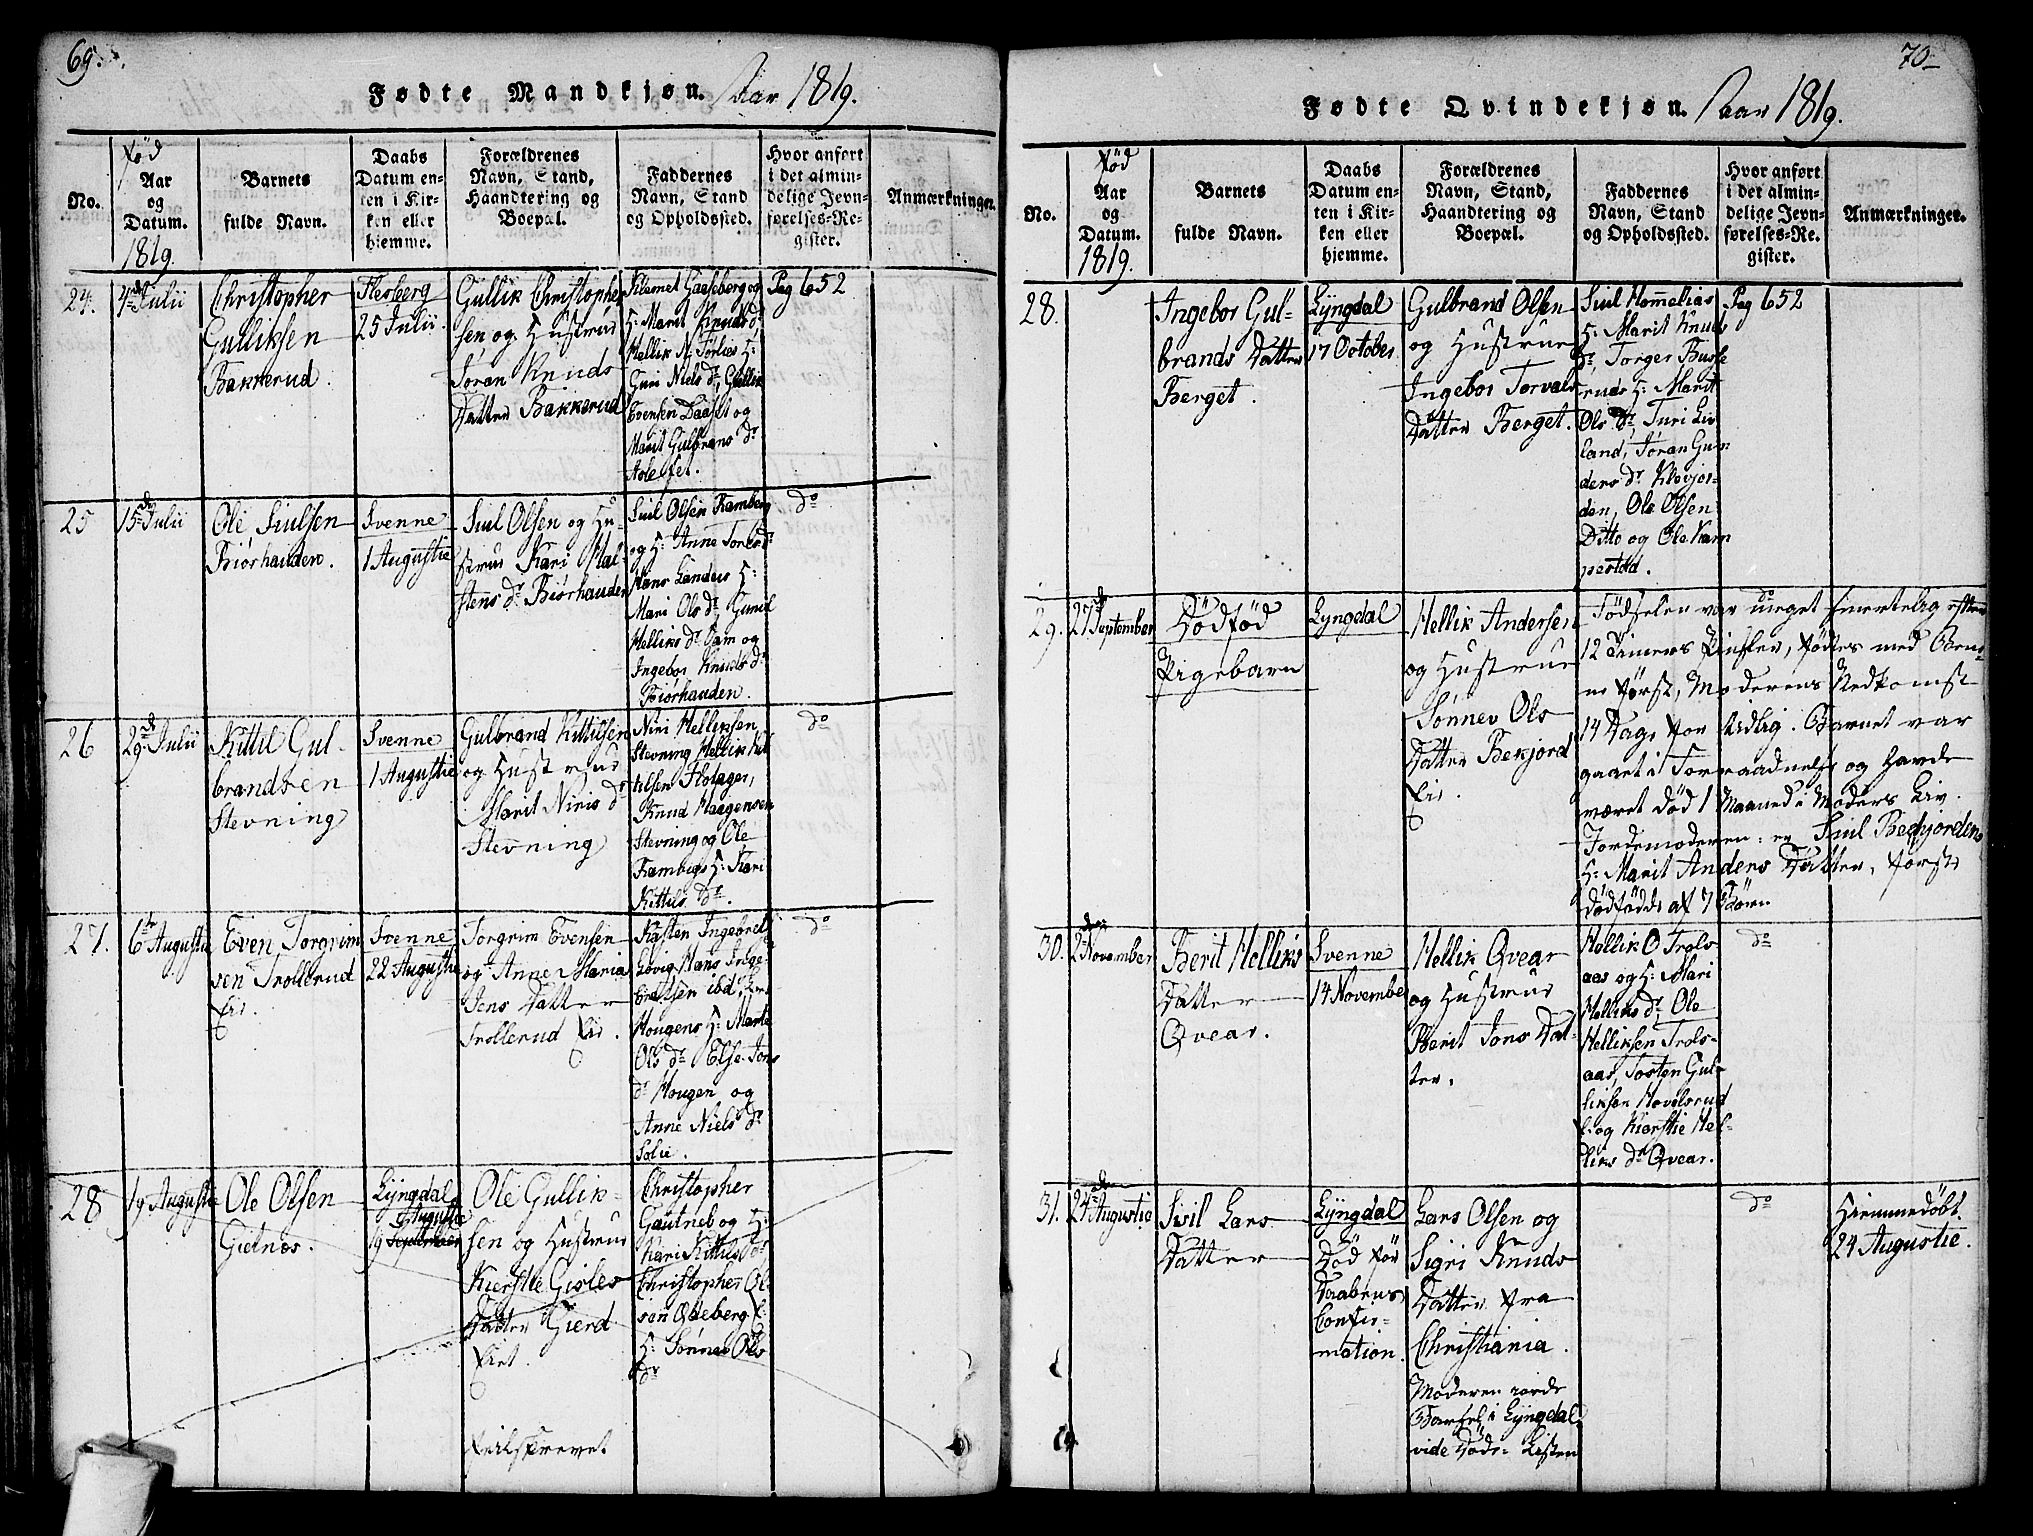 69.
Fødte Mandkjøn. Aar 1819.
No.
Fød
Aar
og
Datum.
1819.
Barnets
fulde Navn.
Daabs
Datum en-
ten i Kir-
ken eller
hjemme.
Forældrenes
Navn, Stand,
Haandtering og
Boepæl.
Faddernes
Navn, Stand
og Opholdssted.
Hvor anført
i det almin-
delige Jevn-
førelses-Re-
gister.
Anmærkninger.
24.
4de Julii
Christopher
Gulliksen
Bakkerud.
Flesberg
25 Julii.
Gullik Christopher
sen og Hustrue
Jøran Knuds
Datter Bakkerud
Klemet Gaaseberg og
H: Marit Knuds Dr
Hellik N. Førlies H:
Guri Niels Dr, Gullik
Evensen Daaset og
Marit Gulbrans Dr
Aaleset.
Pag 652
25
15de Julii
Ole Siulsen
Biørhauden.
Svenne
1 Augustie
Siul Olsen og Hu-
strue Kari Hal-
stens Dr Biørhauden
Siul Olsen Ramberg
og H: Anne Tores Dr
Hans Landeis H:
Mari Ols Dr, Gunil
Helliks Dr Sam og
Ingebor Knuds Dr
Biørhauden.
Do
26
29de Julii
Kittil Gul-
brandsen
Stevning
Svenne
1 Augustie
Gulbrand Kittilsen
og Hustrue
Marit Niris Dr
Stevning
Niri Helliksen
Stevning Hellik Kit
tilsen Flotager,
Knud Haagensen
Stevning og Ole
Rambergs H: Kari
Kittils Dr.
Do
27.
6te Augustie
Even Torgrim
sen Trollerud
Eie.
Svenne
22 Augustie
Torgrim Evensen
og Anne Maria
Jens Datter
Trollerud Eie.
Kasten Ingebret
Løvig, Hans Inge-
bretsen ibd,
Hougens H: Marte
Ols Dr Else Jons
Dr Hougen og
Anne Niels Dr
Solie.
Do
28
19 Augustie
Ole Olsen
Gielnes.
Lyngdal
Augustie
19 September
Ole Gullik-
sen og Hustrue
Kierstie Gisles
Datter Gierd
Eiet.
Feilskrevet
Christopher
Gautneb og H:
Kari Kittils Dr
Christopher Ol-
sen Odeberg
H: Sønnev Ols
Dr
70
Fødte Qvindekjøn. Aar 1819.
No.
Fød
Aar
og
Datum.
1819.
Barnets
fulde Navn.
Daabs
Datum en-
ten i Kir-
ken eller
hjemme.
Forældrenes
Navn, Stand,
Haandtering og
Boepæl.
Faddernes
Navn, Stand
og Opholdssted.
Hvor anført
i det almin-
delige Jevn-
førelses-Re-
gister.
Anmærkninger.
28.
Ingebor Gul-
brands Datter
Berget.
Lyngdal
17 October
Gulbrand Olsen
og Hustrue
Ingebor Torvals
Datter Berget.
Siul Hommelias
H: Marit Knuds
Dr, Torger Busse
ruds H: Marit
Ols Dr, Turi Liv
land, Jøran Gun
ders Dr Klevjor-
den, Ole Olsen
Ditto og Ole Kam
pestad.
Pag 652
29.
27de September
Dödföd
Pigebarn
Lyngdal
Hellik Andersen
og Hustrue
Sønnev Ols
Datter Bekjord
Eie.
Do
Födselen var meget smertelig efter
12 Timers Pinsler, födtes med Bene-
ne först, Moderens Nedkomst
14 Dage for tidlig. Barnet var
gaaet i Forraadnelse og havde
været död 1 Maaned i Moders Liv.
Jordemoderen: er Siul Bekjordens
H: Marit Anders Datter, förste
dödfödde af 7 Börn.
30.
2den November
Berit Helliks
Datter
Qvear.
Svenne
14 November
Hellik Qvear
og Hustrue
Berit Jons Dat-
ter.
Hellik O Trols-
aas og H: Mari
Helliks Dr, Ole
Helliksen Trols-
aas, Tosten Gul-
liksen Hovelsrud
E: og Kierstie Hel-
liks Dr Qvear.
Do
31.
24de Augustie
Sivil Lars
Datter
Lyngdal
Död för
Daabens
Confir-
mation.
Lars Olsen og
Sigri Knuds
Datter fra
Christiania.
Moderen giorde
Barsel i Lyngdal
vide Döde Listen
Do
Hiemmedöbt
24 Augustie.